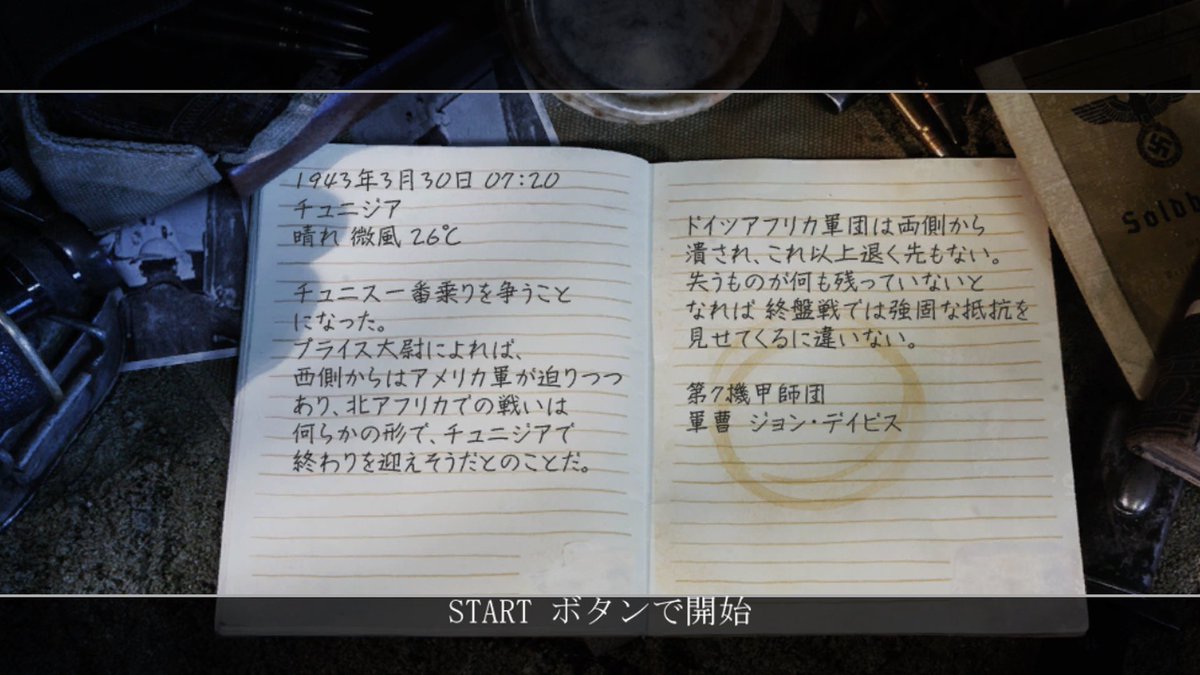 1943年3月30日 07:20
チュニジア
晴れ 微風 26℃
チュニス一番乗りを争うこと
になった。
プライス大尉によれば、
西側からはアメリカ軍が迫りつつ
あり、北アフリカでの戦いは
何らかの形で、チュニジアで
終わりを迎えそうだとのことだ。
ドイツアフリカ軍団は両側から
潰され、これ以上退く先もない。
失うものが何も残っていないと
なれば 終盤戦では強固な抵抗を
見せてくるに違いない。
第7機甲師団
軍曹 ジョン・デイビス
START ボタンで開始